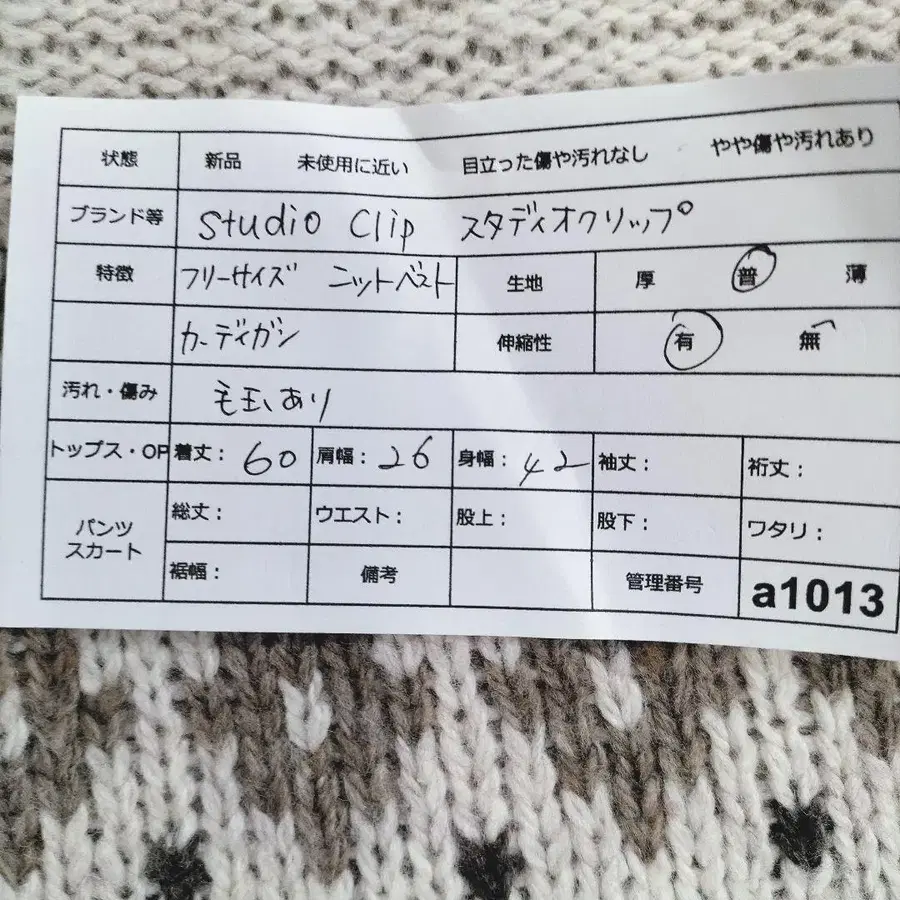 状態 新品 未使用に近い 目立った傷や汚れなし やや傷や汚れあり
ブランド等 studio Clip スタディオクリップ
特徴 フリーサイズ ニットベスト 生地 厚 普 薄
カーディガン 伸縮性 有 無
汚れ・傷み 毛玉あり
トップス・OP 着丈: 60 肩幅: 26 身幅: 42 袖丈: 裄丈:
パンツ スカート 総丈: ウエスト: 股上: 股下: ワタリ:
裾幅: 備考 管理番号 a1013